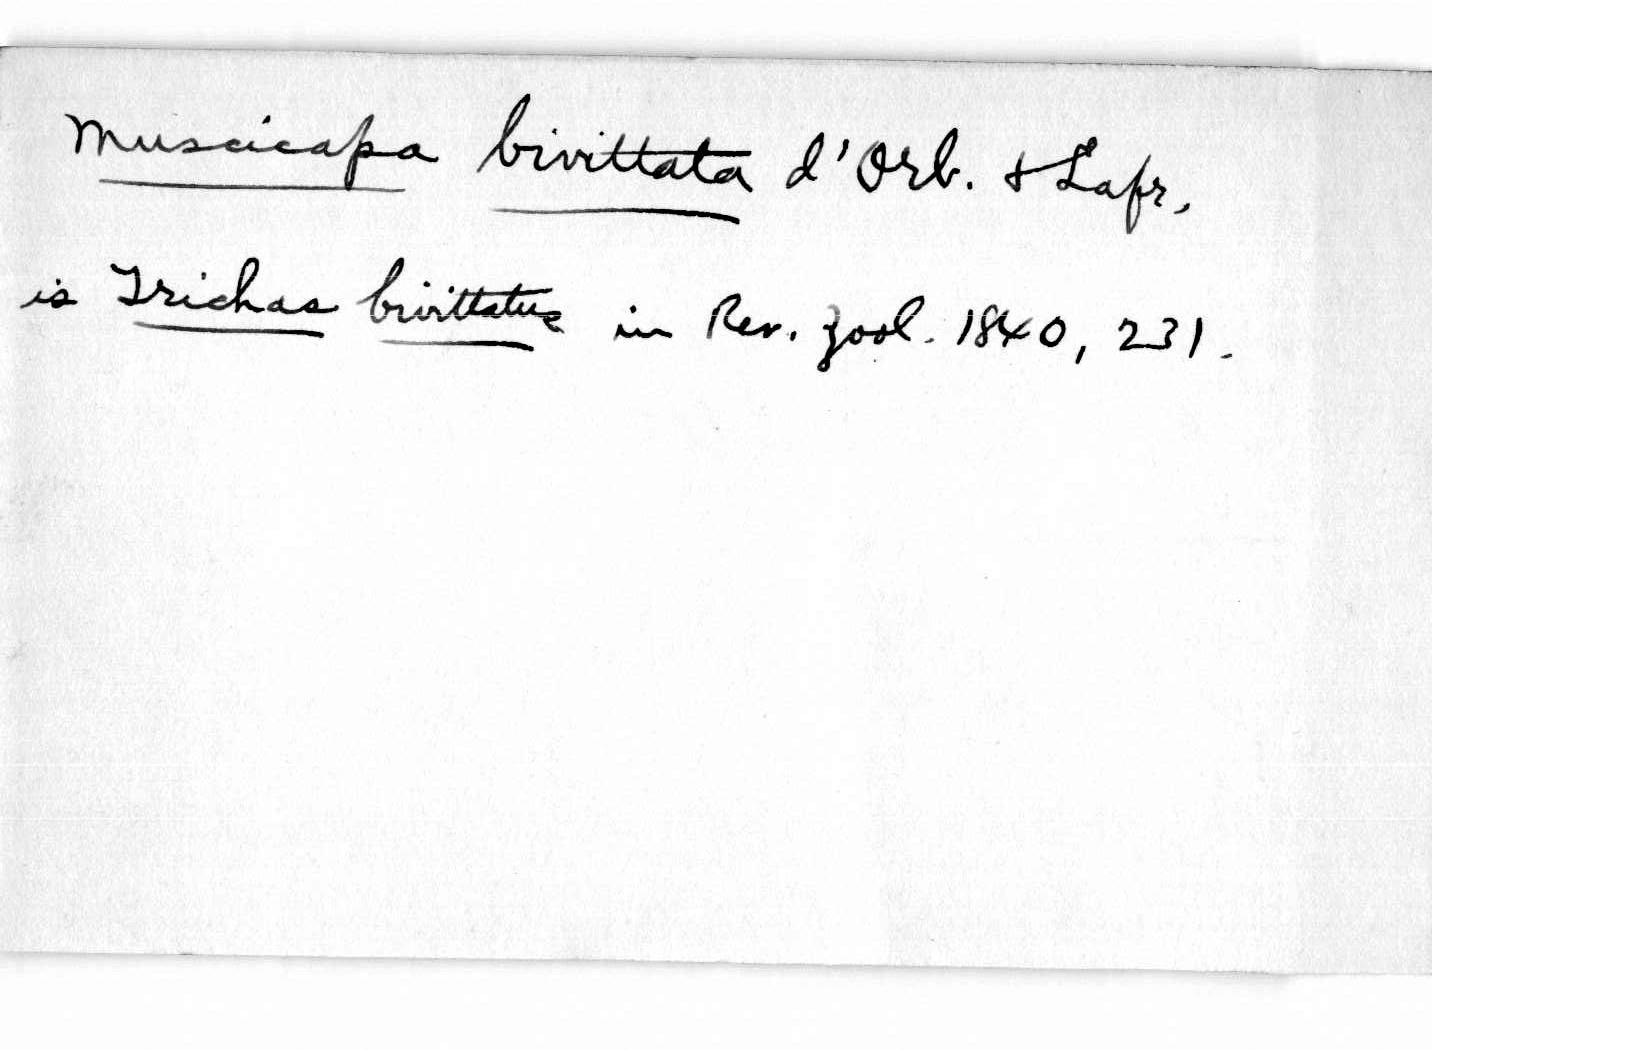 Muscicapa bivittata d'Orb. & Lafr.
is Trichas bivittatus in Rev. Zool. 1840, 231.